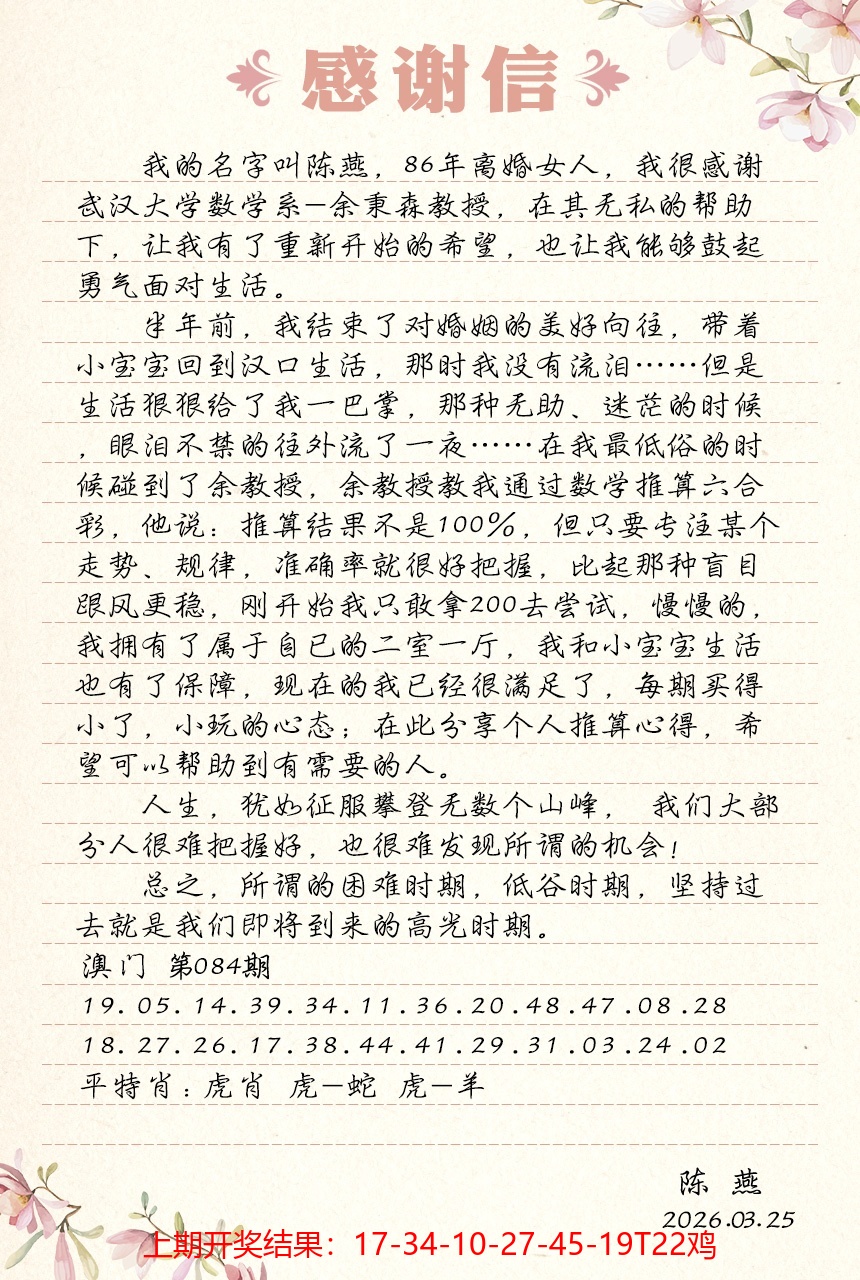 感谢信
我的名字叫陈燕，86年离婚女人，我很感谢
武汉大学数学系—余秉森教授，在其无私的帮助
下，让我有了重新开始的希望，也让我能够鼓起
勇气面对生活。
半年前，我结束了对婚姻的美好向往，带着
小宝宝回到汉口生活，那时我没有流泪……但是
生活狠狠给了我一巴掌，那种无助、迷茫的时候
，眼泪不禁的往外流了一夜……在我最低俗的时
候碰到了余教授，余教授教我通过数学推算六合
彩，他说：推算结果不是100%，但只要专注某个
走势、规律，准确率就很好把握，比起那种盲目
跟风更稳，刚开始我只敢拿200去尝试，慢慢的，
我拥有了属于自己的二室一厅，我和小宝宝生活
也有了保障，现在的我已经很满足了，每期买得
小了，小玩的心态；在此分享个人推算心得，希
望可以帮助到有需要的人。
人生，犹如征服攀登无数个山峰， 我们大部
分人很难把握好，也很难发现所谓的机会！
总之，所谓的困难时期，低谷时期，坚持过
去就是我们即将到来的高光时期。
澳门 第084期
19.05.14.39.34.11.36.20.48.47.08.28
18.27.26.17.38.44.41.29.31.03.24.02
平特肖：虎肖 虎—蛇 虎—羊
陈 燕
2026.03.25
上期开奖结果：17-34-10-27-45-19T22鸡